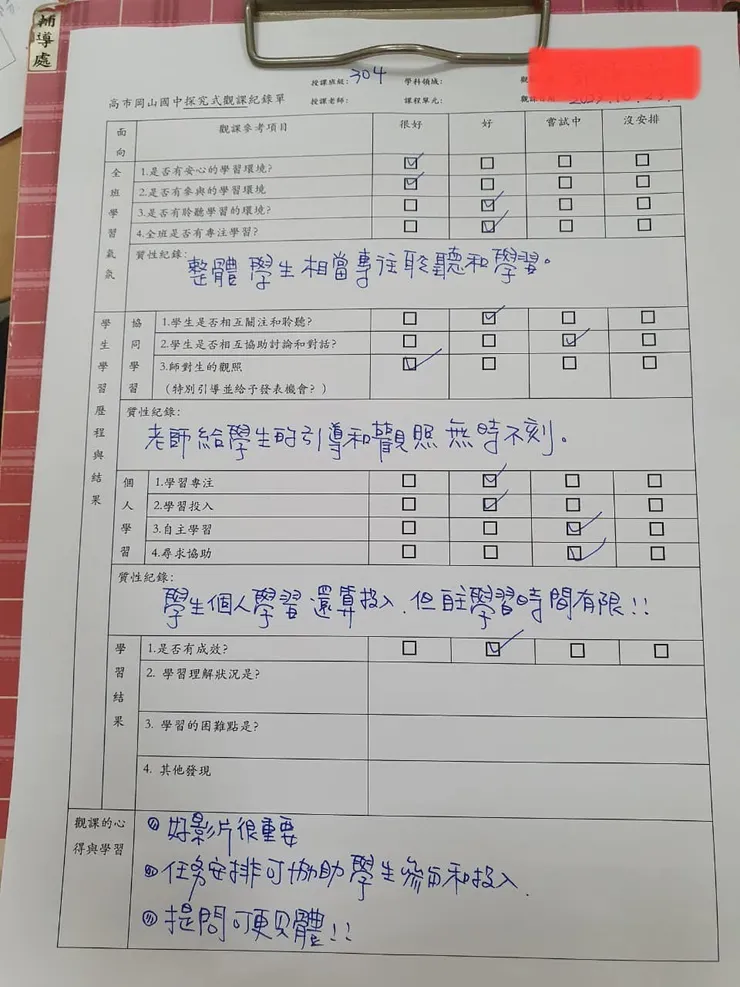 輔導處
授課班級: 304 學科領域: 觀
高市岡山國中探究式觀課紀錄單 授課老師: 課程單元:
面向 觀課參考項目 很好 好 嘗試中 沒安排
全班學習氣氛
1.是否有安心的學習環境? ☑ □ □ □
2.是否有參與的學習環境 ☑ □ □ □
3.是否有聆聽學習的環境? □ ☑ □ □
4.全班是否有專注學習? □ ☑ □ □
質性紀錄:
整體 學生 相當專注聆聽和學習。
學生學習歷程與結果
協同學習
1.學生是否相互關注和聆聽? □ ☑ □ □
2.學生是否相互協助討論和對話? □ □ ☑ □
3.師對生的觀照 ☑ □ □ □
(特別引導並給予發表機會?)
質性紀錄:
老師給學生的引導和觀照 無時不刻。
個人學習
1.學習專注 □ ☑ □ □
2.學習投入 □ ☑ □ □
3.自主學習 □ □ ☑ □
4.尋求協助 □ □ ☑ □
質性紀錄:
學生個人學習 還算投入、但自主學習時間有限!!
學習結果
1.是否有成效? □ ☑ □ □
2. 學習理解狀況是?
3. 學習的困難點是?
4. 其他發現
觀課的心得與學習
好影片很重要
任務安排可協助 學生參與和投入.
提問可更具體!!